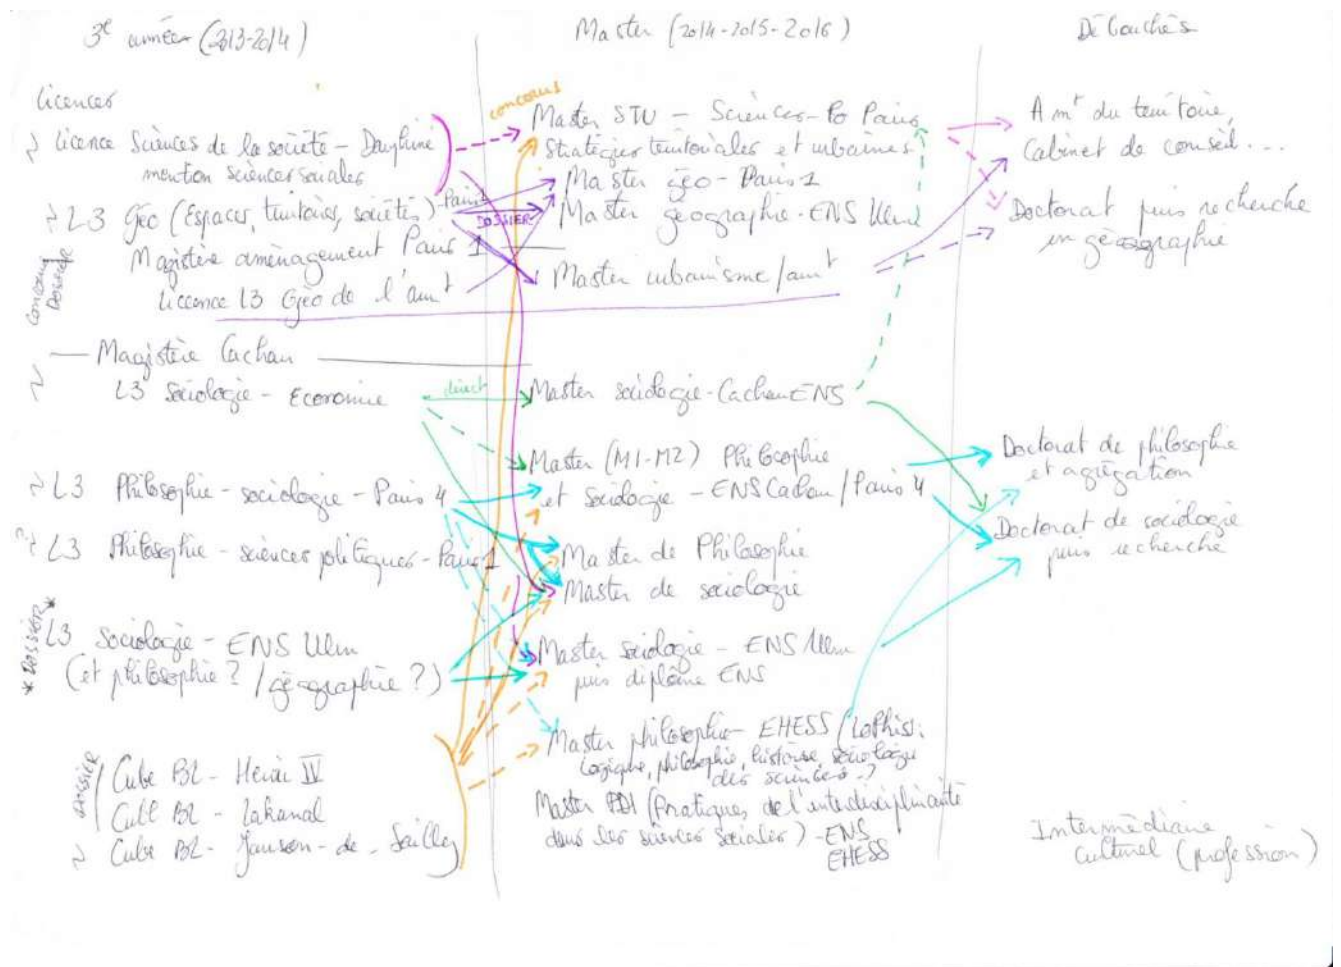 3e année (2013-2014)
Licences
~ Licence Sciences de la société - Dauphine
mention sciences sociales
~ L3 Géo (Espaces, territoires, sociétés) - Paris 1
Magistère aménagement Paris 1
Licence L3 Géo de l'amt
Concours
Dossier
~ — Magistère Cachan
L3 sociologie - Economie
~ L3 Philosophie - sociologie - Paris 4
? ~ L3 Philosophie - sciences politiques - Paris 1
* DOSSIER *
L3 Sociologie - ENS Ulm
(et philosophie ? / géographie ?)
DOSSIER
Cube BL - Henri IV
Cube BL - Lakanal
~ Cube BL - Janson-de-Sailly
concours
DOSSIER
direct
Master (2014-2015-2016)
Master STU - Sciences-Po Paris
Stratégies territoriales et urbaines
Master géo - Paris 1
Master géographie - ENS Ulm
Master urbanisme/amt
Master sociologie - Cachan ENS
Master (M1-M2) Philosophie
et sociologie - ENS Cachan / Paris 4
Master de Philosophie
Master de sociologie
Master sociologie - ENS Ulm
puis diplôme ENS
Master philosophie - EHESS (Lophiss :
Logique, philosophie, histoire, sociologie
des sciences - ?
Master PDI (Pratiques de l'interdisciplinarité
dans les sciences sociales) - ENS
EHESS
Débouchés
Amt du territoire,
Cabinet de conseil...
Doctorat puis recherche
en géographie
Doctorat de philosophie
et agrégation
Doctorat de sociologie
puis recherche
Intermédiaire
culturel (profession)